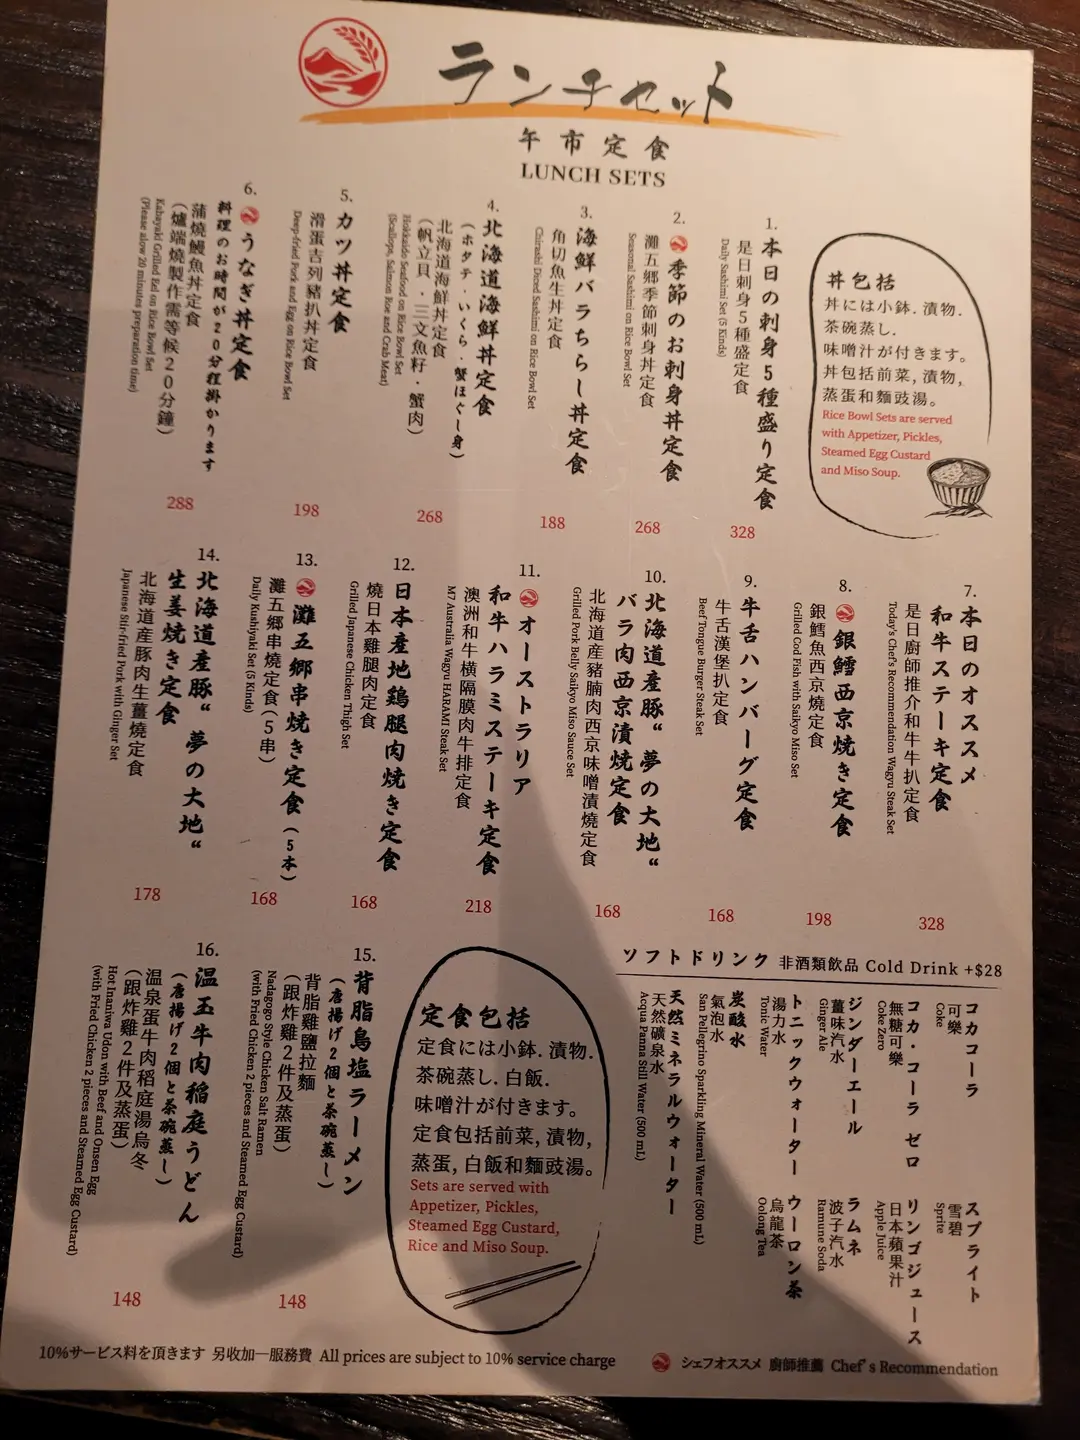 ランチセット
午市定食
LUNCH SETS
丼包括
丼には小鉢.漬物.
茶碗蒸し.
味噌汁が付きます。
丼包括前菜,漬物,
蒸蛋和麵豉湯。
Rice Bowl Sets are served
with Appetizer, Pickles,
Steamed Egg Custard
and Miso Soup.
1.
本日の刺身5種盛り定食
是日刺身5種盛定食
Daily Sashimi Set (5 Kinds)
328
2.
季節のお刺身丼定食
灘五郷季節刺身丼定食
Seasonal Sashimi on Rice Bowl Set
268
3.
海鮮バラちらし丼定食
角切魚生丼定食
Chirashi Diced Sashimi on Rice Bowl Set
188
4.
北海道海鮮丼定食
(ホタテ・いくら・蟹ほぐし身)
北海道海鮮丼定食
(帆立貝・三文魚籽・蟹肉)
Hokkaido Seafood on Rice Bowl Set
(Scallops, Salmon Roe and Crab Meat)
268
5.
カツ丼定食
滑蛋吉列豬扒丼定食
Deep-fried Pork and Egg on Rice Bowl Set
198
6.
うなぎ丼定食
料理のお時間が20分程掛かります
蒲燒鰻魚丼定食
(爐端燒製作需等候20分鐘)
Kabayaki Grilled Eel on Rice Bowl Set
(Please alow 20 minutes preparation time)
288
7.
本日のオススメ
和牛ステーキ定食
是日廚師推介和牛牛扒定食
Today's Chef's Recommendation Wagyu Steak Set
328
8.
銀鱈西京焼き定食
銀鱈魚西京燒定食
Grilled Cod Fish with Saikyo Miso Set
198
9.
牛舌ハンバーグ定食
牛舌漢堡扒定食
Beef Tongue Burger Steak Set
168
10.
北海道産豚“夢の大地“
バラ肉西京漬焼定食
北海道産豬腩肉西京味噌漬燒定食
Grilled Pork Belly Saikyo Miso Sauce Set
168
11.
オーストラリア
和牛ハラミステーキ定食
澳洲和牛橫隔膜肉牛排定食
M7 Australia Wagyu HARAMI Steak Set
218
12.
日本産地鶏腿肉焼き定食
燒日本雞腿肉定食
Grilled Japanese Chicken Thigh Set
168
13.
灘五郷串焼き定食(5本)
灘五郷串燒定食(5串)
Daily Kushiyaki Set (5 Kinds)
168
14.
北海道産豚“夢の大地“
生姜焼き定食
北海道産豚肉生薑燒定食
Japanese Stir-fried Pork with Ginger Set
178
15.
背脂鳥塩ラーメン
(唐揚げ2個と茶碗蒸し)
背脂雞鹽拉麵
(跟炸雞2件及蒸蛋)
Nadagogo Style Chicken Salt Ramen
(with Fried Chicken 2 pieces and Steamed Egg Custard)
148
16.
温玉牛肉稲庭うどん
(唐揚げ2個と茶碗蒸し)
温泉蛋牛肉稻庭湯烏冬
(跟炸雞2件及蒸蛋)
Hot Inaniwa Udon with Beef and Onsen Egg
(with Fried Chicken 2 pieces and Steamed Egg Custard)
148
定食包括
定食には小鉢.漬物.
茶碗蒸し.白飯.
味噌汁が付きます。
定食包括前菜,漬物,
蒸蛋,白飯和麵豉湯。
Sets are served with
Appetizer, Pickles,
Steamed Egg Custard,
Rice and Miso Soup.
ソフトドリンク 非酒類飲品 Cold Drink +$28
コカコーラ
可樂
Coke
コカ・コーラ ゼロ
無糖可樂
Coke Zero
ジンダーエール
薑味汽水
Ginger Ale
トニックウォーター
湯力水
Tonic Water
炭酸水
氣泡水
San Pellegrino Sparkling Mineral Water (500 mL)
天然ミネラルウォーター
天然礦泉水
Acqua Panna Still Water (500 mL)
スプライト
雪碧
Sprite
リンゴジュース
日本蘋果汁
Apple Juice
ラムネ
波子汽水
Ramune Soda
ウーロン茶
烏龍茶
Oolong Tea
10%サービス料を頂きます 另收加一服務費 All prices are subject to 10% service charge
シェフオススメ 廚師推薦 Chef's Recommendation